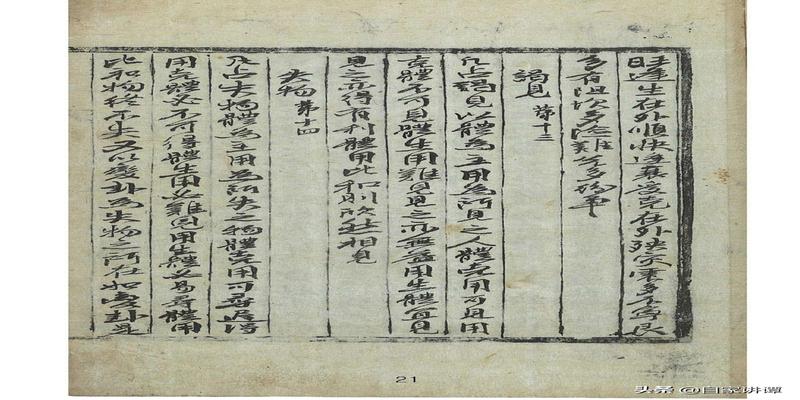 旺逢生在外順快逢衰受克在外殃災多不寧艮
多有阻坎多險難兌多紛爭
謁見 第十三
凡占謁見以體為主用為所見之人體克用可見用
克體不可見體生用難見見之亦無益用生體可見
見之亦得有利體用比和則歡然相見
失物 第十四
凡占失物體為主用為所失之物體克用可尋遲得
用克體必不可得體生用必難見用生體必易尋體用
比和物終不失又以變卦為失物之所在如變卦是
21
头条 @自家讲谭